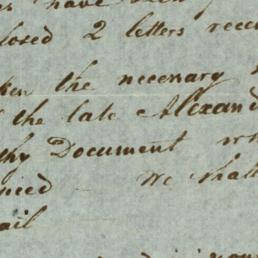 have
losed 2 letters rece
ken the necessary
the late Alexand
thy Document wh
nced - We shall
ail